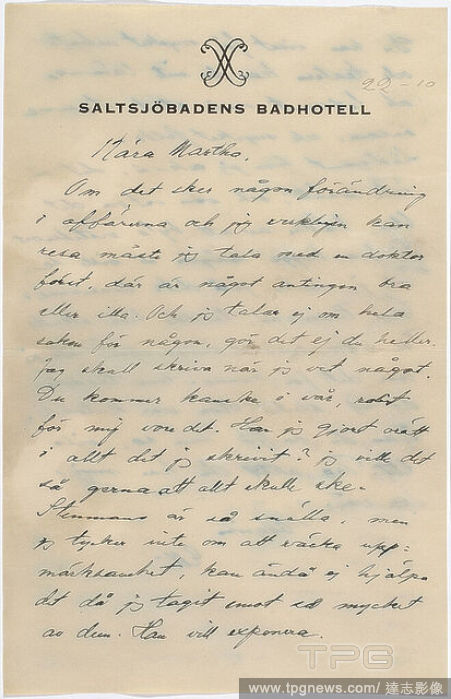 22-10
SALTSJÖBADENS BADHOTELL
Kära Martha.
Om det sker någon förändring
i affärerna och jag verkligen kan
resa måste jag tala med en doktor
först, där är något antingen bra
eller illa. Och jag talar ej om hela
saken för någon, gör det ej du heller.
Jag skall skriva när jag vet något.
Du kommer kanske i vår,
för mig vore det. Har jag gjort orätt
i allt det jag skrivit? jag ville det
så gerna att allt skulle ske.
Stenmans är så snälla, men
jag tycker inte om att väcka upp-
märksamhet, kan ändå ej hjälpa
det då jag tagit emot så mycket
av dem. Han vill exponera.
TPG
www.tpgnews.com/ 達志影像